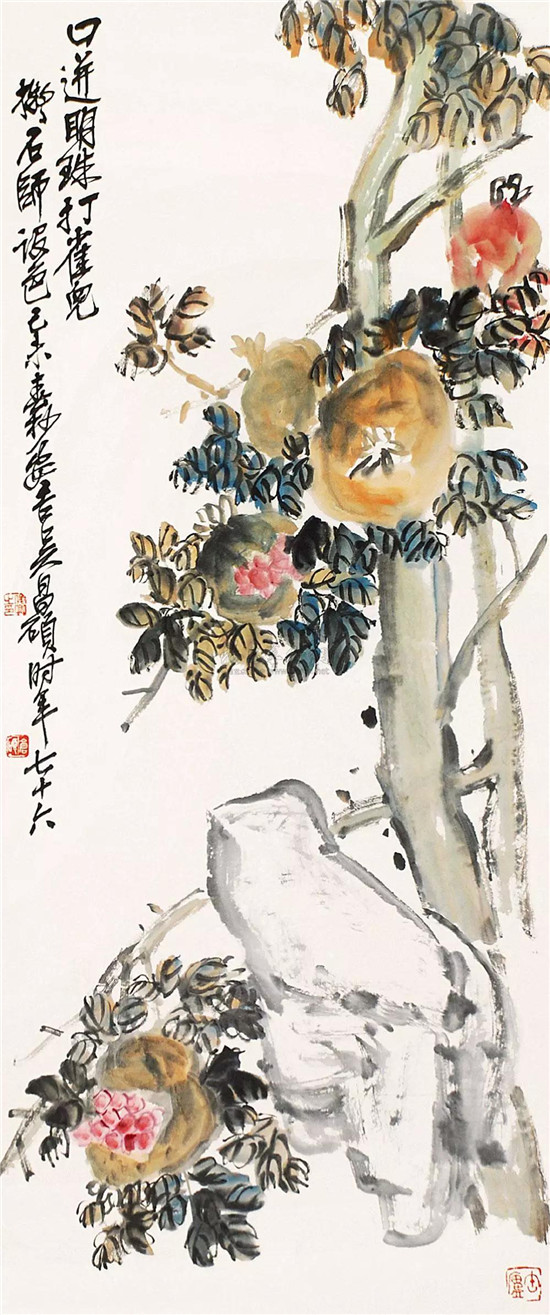 口迸明珠打雀兒
石師設色己未春杪安吉吳昌碩時年七十六